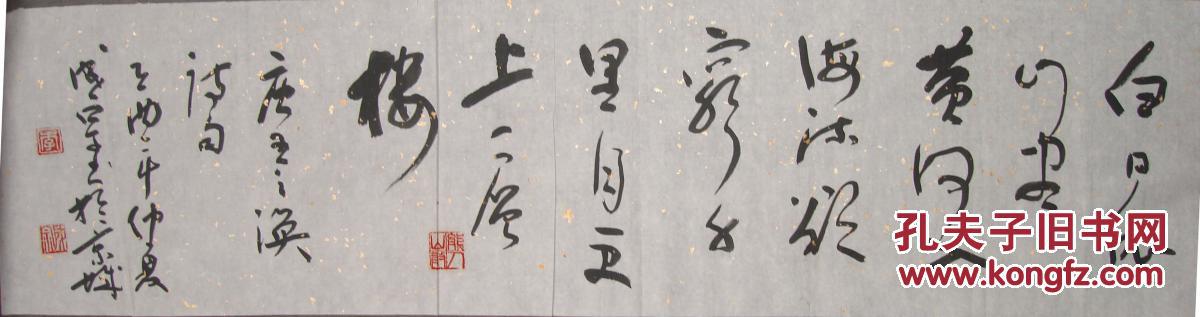 白日依
山尽
黄河入
海流欲
穷千
里目更
上一层
楼
唐王之涣
诗句
乙酉年仲夏
书于京城
孔夫子旧书网
www.kongfz.com